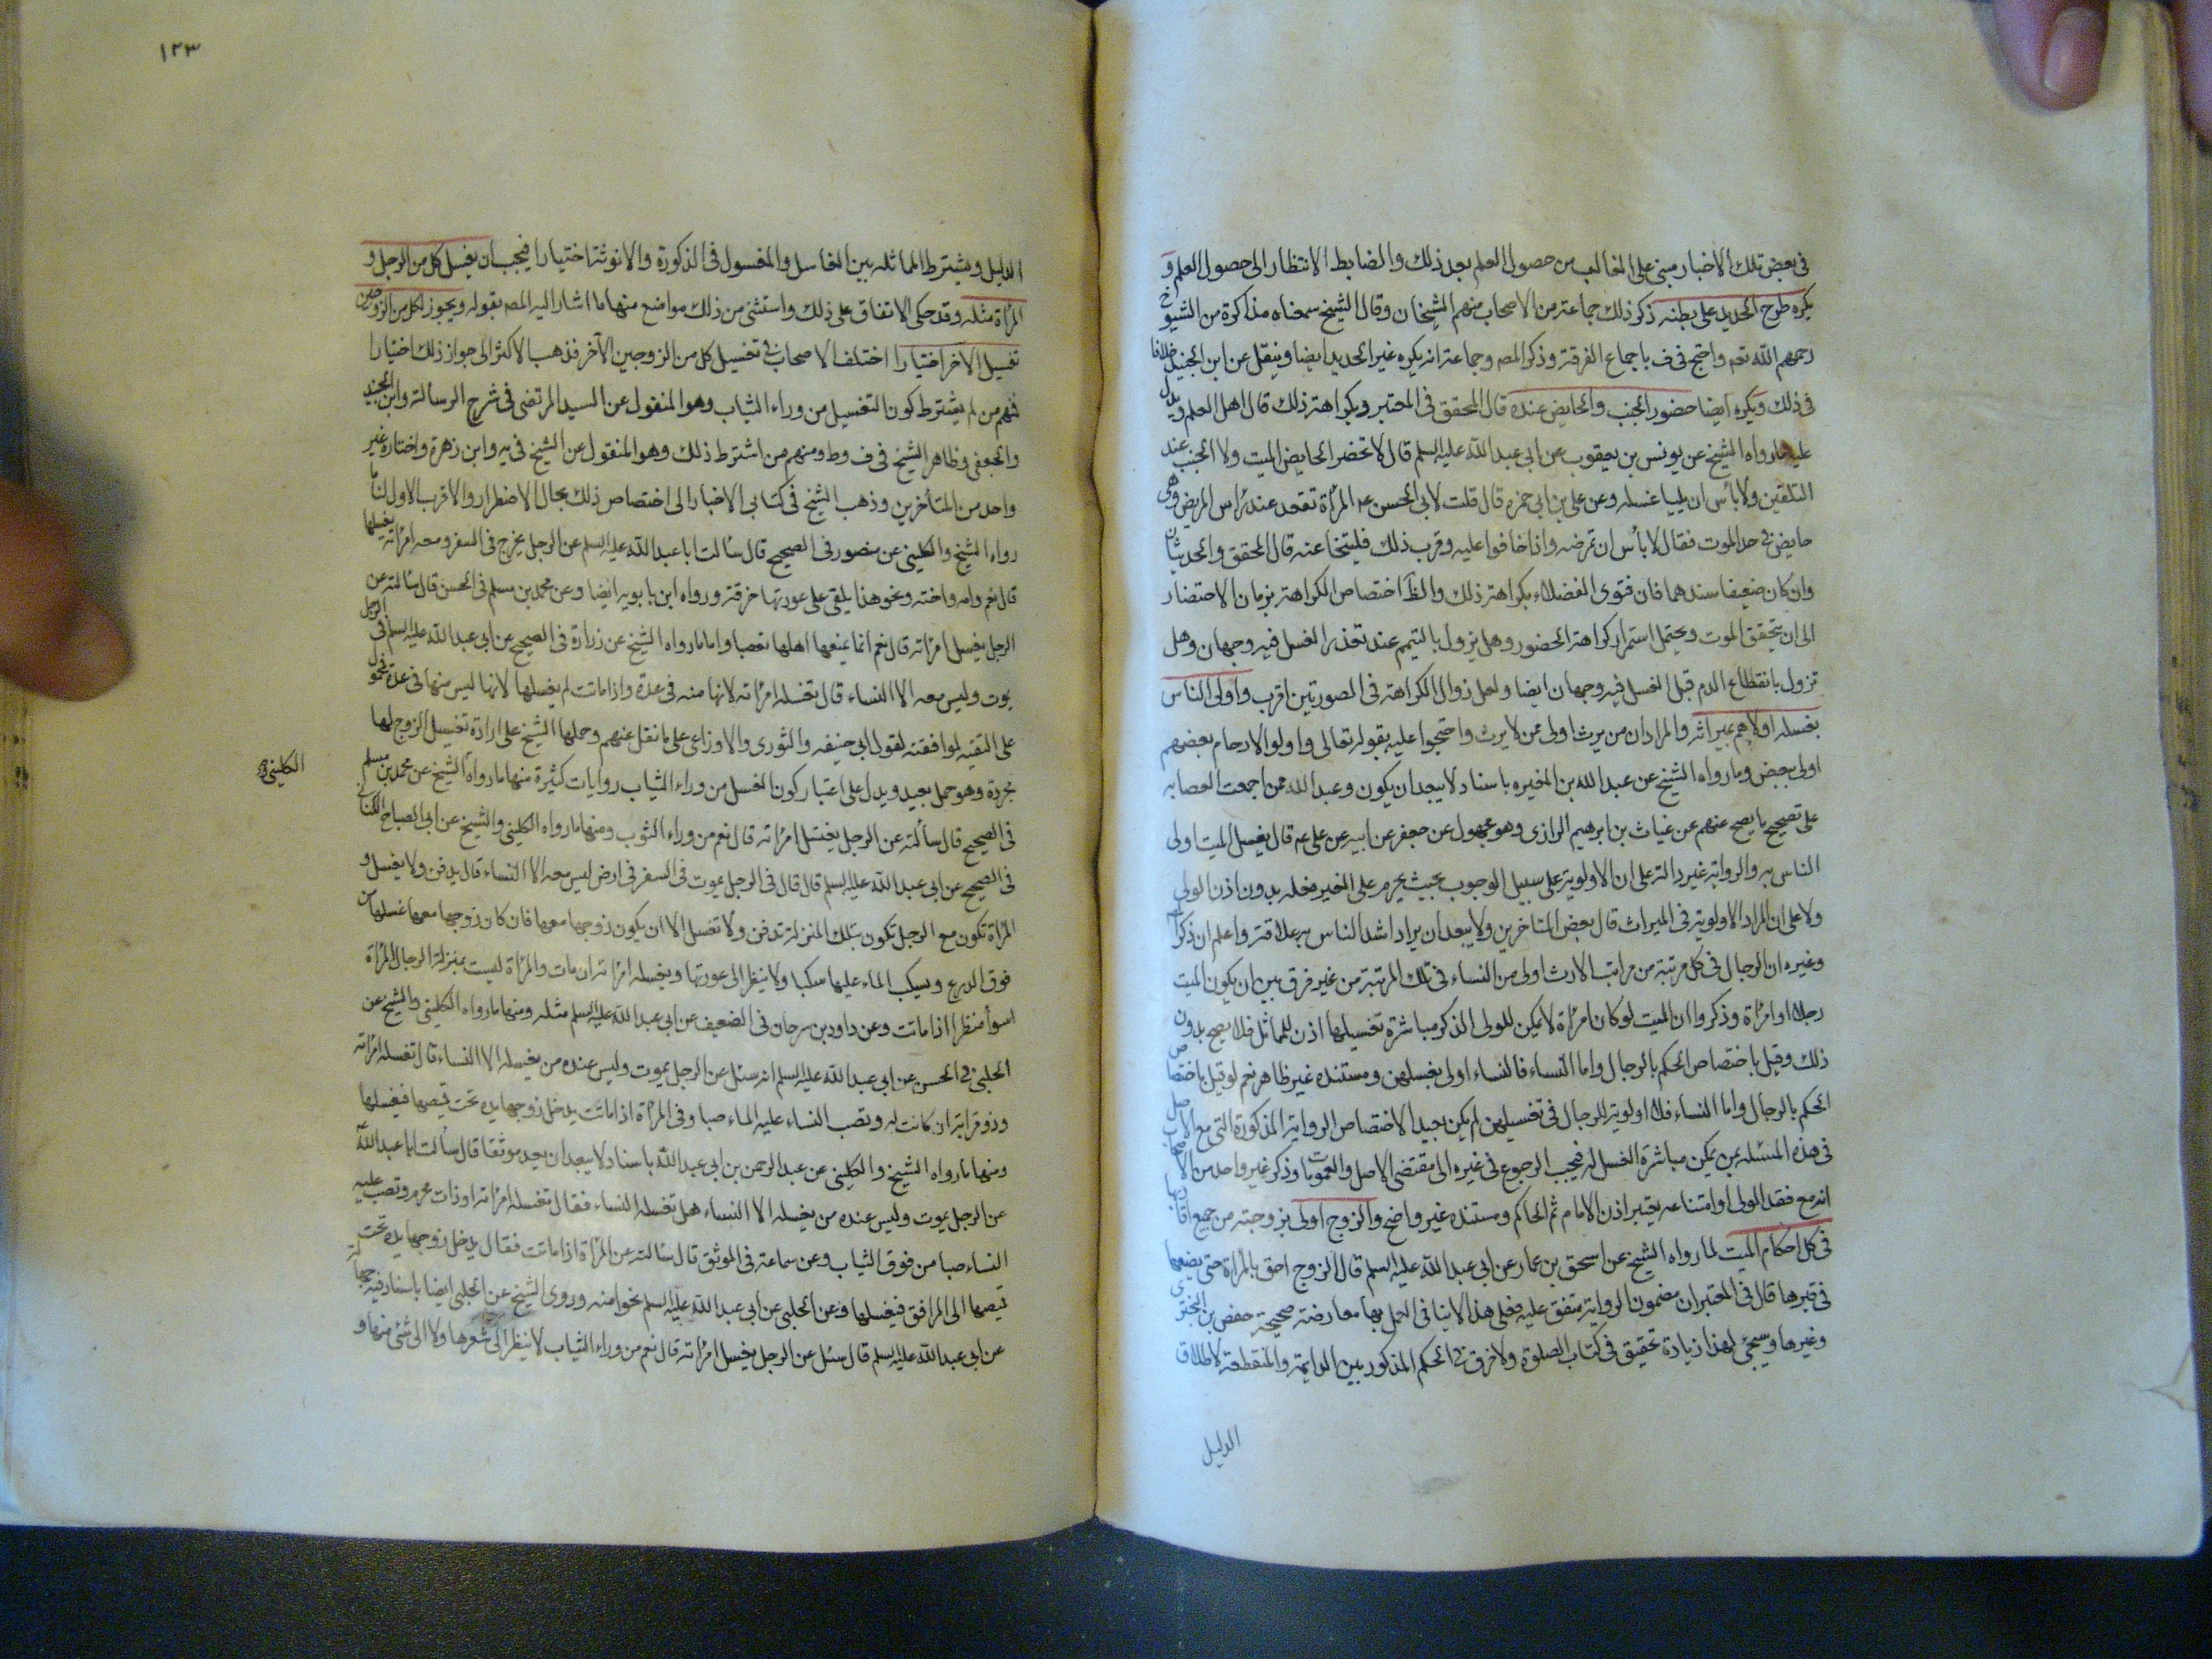 في بعض تلك الاخبار مبني على الغالب من حصول العلم بعد ذلك والضابط الانتظار الى حصول العلم و
يكره طرح الحديد على بطنه ذكر ذلك جماعة من الاصحاب منهم الشيخان وقال الشيخ سمعناه مذاكرة من الشيوخ
رحمهم الله تعم واحتج في ف باجماع الفرقة وذكر المصه وجماعة انه يكره غير الحديد ايضا وينقل عن ابن الجنيد خلافا
في ذلك ويكره ايضا حضور الجنب والحايض عنده قال المحقق في المعتبر وبكراهة ذلك قال اهل العلم ويدل
عليه ما رواه الشيخ عن يونس بن يعقوب عن ابي عبد الله عليه السلم قال لا تحضر الحايض الميت ولا الجنب عند
التلقين ولا بأس ان يليا غسله وعن علي بن ابي حمزه قال قلت لابي الحسن عه المرأة تقعد عند رأس المريض وهى
حايض في حد الموت فقال لا بأس ان تمرضه واذا خافوا عليه وقرب ذلك فليتنحا عنه قال المحقق والحديثان
وان كان ضعيفا سندهما فان فتوى الفضلاء بكراهة ذلك والظ اختصاص الكراهة بزمان الاحتضار
الى ان يتحقق الموت ويحتمل استمرار كراهة الحضور وهل يزول بالتيمم عند تعذر الغسل فيه وجهان وهل
تزول بانقطاع الدم قبل الغسل فيه وجهان ايضا ولعل زوال الكراهة في الصورتين اقرب واولى الناس
بغسله اولاهم بميراثه والمراد ان من يرث اولى ممن لا يرث واحتجوا عليه بقوله تعالى واولوا الارحام بعضهم
اولى ببعض وما رواه الشيخ عن عبد الله بن المغيره باسناد لا يبعد ان يكون وعبد الله ممن اجمعت العصابه
على تصحيح ما يصح عنهم عن غياث بن ابرهيم الرازى وهو مجهول عن جعفر عن ابيه عن على عه قال يغسل الميت اولى
الناس به والرواية غير دالة على ان الاولوية على سبيل الوجوب بحيث يحرم على الغير فعله بدون اذن الولي
ولا على ان المراد الاولوية في الميراث قال بعض المتاخرين ولا يبعد ان يراد اشد الناس به علاقة واعلم ان ذكر
وغيره ان الرجال في كل مرتبة من مراتب الارث اولى من النساء في تلك المرتبة من غير فرق بين ان يكون الميت
رجلا او امرأة وذكروا ان الميت لو كان امرأة لا يمكن للولى الذكر مباشرة تغسيلها اذن للمماثل فلا يصح بدون
ذلك وقيل باختصاص الحكم بالرجال واما النساء فالنساء اولى بغسلهن ومستنده غير ظاهر نعم لو قيل باختصاص
الحكم بالرجال واما النساء فلا اولوية للرجال في تغسيلهن لم يكن بعيدا لاختصاص الرواية المذكورة التي مع الاصل
في هذه المسئله بمن يمكن مباشرة الغسل له فيجب الرجوع في غيره الى مقتضى الاصل والعمومات وذكر غير واحد من الاصحاب
انه مع فقد الولى او امتناعه يعتبر اذن الامام ثم الحاكم ومستنده غير واضح والزوج اولى بزوجته من جميع اقاربها
في كل احكام الميت لما رواه الشيخ عن اسحق بن عمار عن ابي عبد الله عليه السلم قال الزوج احق بالمرأة حتى يضعها
في قبرها قال في المعتبر ان مضمون الرواية متفق عليه فعلى هذا لا ينافى العمل بها معارضة صحيحة حفص بن البخترى
وغيرها وسيجئ لهذا زيادة تحقيق في كتاب الصلوة ولا فرق في الحكم المذكور بين الدايمة والمنقطعة لاطلاق
الدليل
١٢٣
الدليل ويشترط المماثله بين الغاسل والمغسول في الذكورة والانوثة اختيارا فيجب ان يغسل كل من الرجل و
المرأة مثله وقد حكى الاتفاق على ذلك واستثنى من ذلك مواضع منها ما اشار اليه المصه بقوله ويجوز لكل من الزوجين
تغسيل الاخر اختيارا اختلف الاصحاب في تغسيل كل من الزوجين الآخر فذهب الاكثر الى جواز ذلك اختيارا
فمنهم من لم يشترط كون التغسيل من وراء الثياب وهو المنقول عن السيد المرتضى في شرح الرسالة وابن الجنيد
والجعفي وظاهر الشيخ في ف وط ومنهم من اشترط ذلك وهو المنقول عن الشيخ في يه وابن زهرة واختاره غير
واحد من المتأخرين وذهب الشيخ في كتابي الاخبار الى اختصاص ذلك بحال الاضطرار والاقرب الاول لنا ما
رواه الشيخ والكليني عن منصور في الصحيح قال سألت ابا عبد الله عليه السلم عن الرجل يخرج في السفر ومعه امرأته يغسلها
قال نعم وامه واخته ونحو هذا يلقى على عورتها خرقة ورواه ابن بابويه ايضا وعن محمد بن مسلم في الحسن قال سألته عن
الرجل يغسل امرأته قال نعم انما يمنعها اهلها تعصبا واما ما رواه الشيخ عن زرارة في الصحيح عن ابي عبد الله عليه السلم في الرجل
يموت وليس معه الا النساء قال تغسله امرأته لانها منه في عدة واذا ماتت لم يغسلها لانه ليس منها في عدة فمحمول
على التقيه لموافقته لقول ابي حنيفه والثورى والاوزاعى على ما نقل عنهم وحملها الشيخ على ارادة تغسيل الزوج لها
مجردة وهو حمل بعيد ويدل على اعتبار كون الغسل من وراء الثياب روايات كثيرة منها ما رواه الشيخ عن محمد بن مسلم
الكليني و
في الصحيح قال سألته عن الرجل يغسل امرأته قال نعم من وراء الثوب ومنها ما رواه الكليني والشيخ عن ابي الصباح الكناني
في الصحيح عن ابي عبد الله عليه السلم قال قال في الرجل يموت في السفر في ارض ليس معه الا النساء قال يدفن ولا يغسل و
المرأة تكون مع الرجل تكون بتلك المنزلة تدفن ولا تغسل الا ان يكون زوجها معها فان كان زوجها معها غسلها من
فوق الدرع ويسكب الماء عليها سكبا ولا ينظر الى عورتها ويغسله امرأته ان مات والمرأة ليست بمنزلة الرجال المرأة
اسوأ منظرا اذا ماتت وعن داود بن سرحان في الضعيف عن ابي عبد الله عليه السلم مثله ومنها ما رواه الكليني والشيخ عن
الحلبي في الحسن عن ابي عبد الله عليه السلم انه سئل عن الرجل يموت وليس عنده من يغسله الا النساء قال تغسله امرأته
وذو قرابته ان كانت له وتصب النساء عليه الماء صبا وفي المرأة اذا ماتت يدخل زوجها يده تحت قميصها فيغسلها
ومنها ما رواه الشيخ والكليني عن عبد الرحمن بن ابي عبد الله باسناد لا يبعد ان يعد موثقا قال سألت ابا عبد الله
عن الرجل يموت وليس عنده من يغسله الا النساء هل تغسله النساء فقال تغسله امرأته او ذات محرمه وتصب عليه
النساء صبا من فوق الثياب وعن سماعة في الموثق قال سألته عن المرأة اذا ماتت فقال يدخل زوجها يده تحت
قميصها الى المرافق فيغسلها وعن الحلبي عن ابي عبد الله عليه السلم نحوا منه وروى الشيخ عن الحلبي ايضا باسناد فيه جهالة
عن ابي عبد الله عليه السلم قال سئل عن الرجل يغسل امرأته قال نعم من وراء الثياب لا ينظر الى شعرها ولا الى شئ منها و